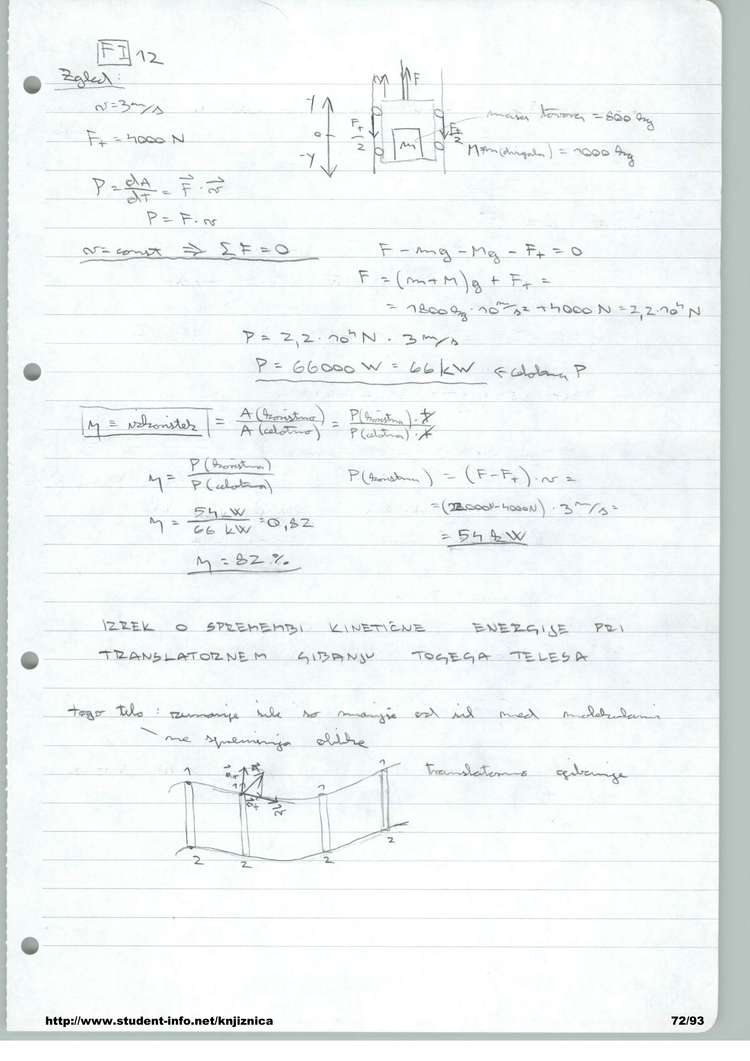 FI 12
Zgled:
v=3m/s
F_t = 4000 N
P = dA/dT = F⃗ · v⃗
P = F · v
v = const ⇒ ΣF = 0
y
0
-y
v
F
F_t/2
F_t/2
m
masa tovora = 800 kg
M (dvigala) = 1000 kg
F - mg - Mg - F_t = 0
F = (m+M)g + F_t =
= 1800kg · 10 m/s² + 4000 N = 2,2·10⁴ N
P = 2,2 · 10⁴ N · 3 m/s
P = 66000 W = 66 kW ← celotna P
η ≡ izkoristek = A (koristno) / A (celotno) = P (koristna) · t / P (celotna) · t
η = P (koristna) / P (celotna)
η = 54 kW / 66 kW = 0,82
η = 82 %
P (koristna) = (F - F_t) · v =
= (22000N - 4000N) · 3 m/s =
= 54 kW
IZREK O SPREMEMBI KINETIČNE ENERGIJE PRI
TRANSLATORNEM GIBANJU TOGEGA TELESA
togo telo : zunanje sile so manjše od sil med molekulami
ne spreminja oblike
translatorno gibanje
1 1 1 1
v⃗
2 2 2 2
http://www.student-info.net/knjiznica
72/93